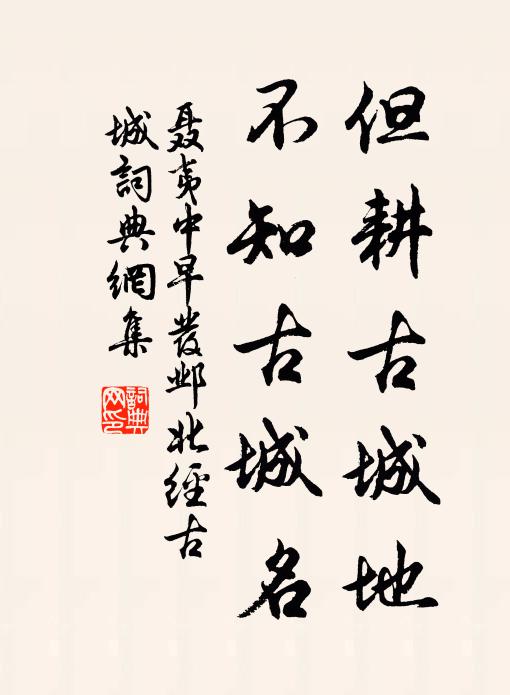 但耕古城地
不知古城名
聂夷中早發邺北經古
城詞典網集
詞典
网印